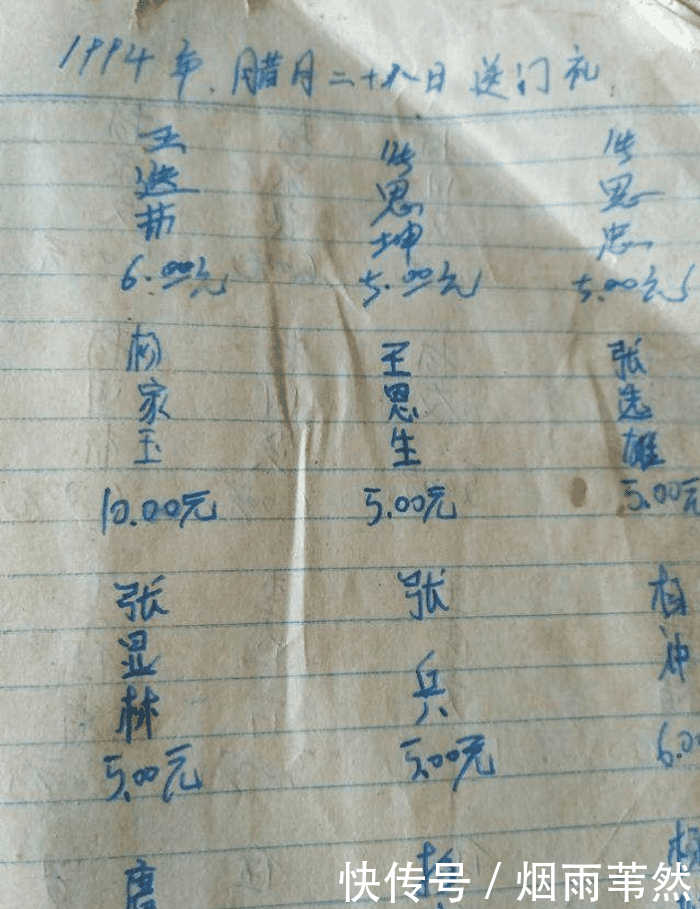 1994年.腊月二十八日送门礼.
王选芬 张思坤 张思忠
6.00元 5.00元 5.00元
杨家玉 王思生 张先雄
10.00元 5.00元 5.00元
张显林 张兵 柏冲
5.00元 5.00元 6.0
唐
快传号 / 烟雨苇然